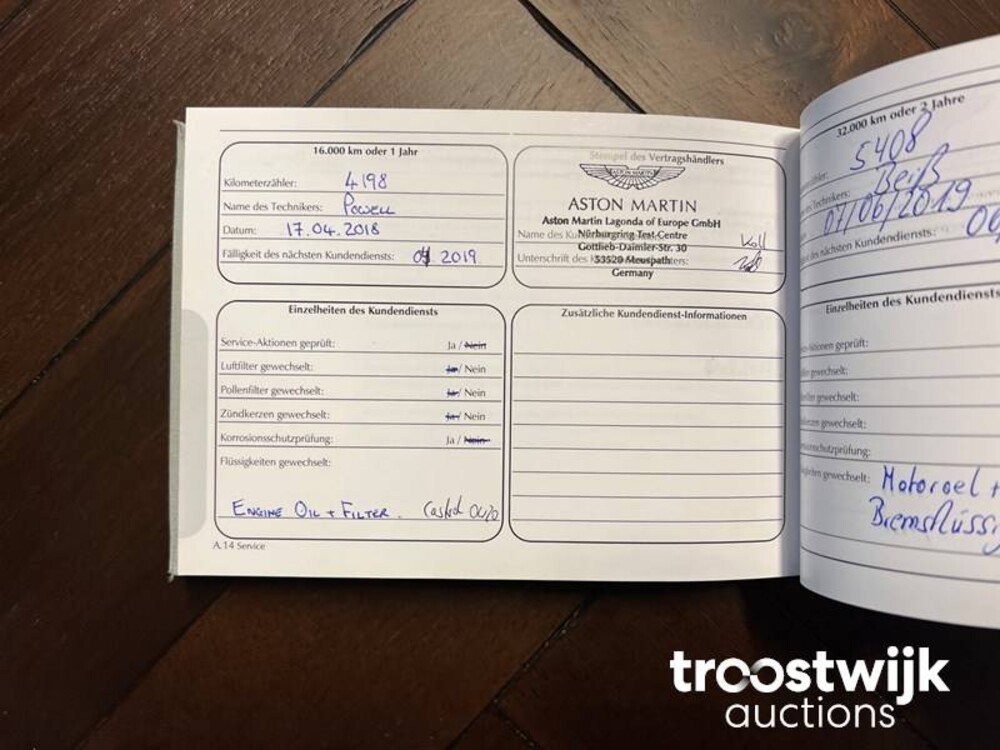 16.000 km oder 1 Jahr
Kilometerzähler: 4198
Name des Technikers: Powell
Datum: 17.04.2018
Fälligkeit des nächsten Kundendiensts: 04 2019
Stempel des Vertragshändlers
ASTON MARTIN
ASTON MARTIN
Aston Martin Lagonda of Europe GmbH
Name des
Nürburgring Test Centre
Gottlieb-Daimler-Str. 30
Unterschrift des
53520 Meuspath
Germany
Einzelheiten des Kundendiensts
Service-Aktionen geprüft: Ja / Nein
Luftfilter gewechselt: Ja / Nein
Pollenfilter gewechselt: Ja / Nein
Zündkerzen gewechselt: Ja / Nein
Korrosionsschutzprüfung: Ja / Nein
Flüssigkeiten gewechselt:
ENGINE OIL + FILTER. Castrol 0W20
A.14 Service
Zusätzliche Kundendienst-Informationen
32.000 km oder 2 Jahre
5408
Technikers: Beiß
04/06/2019
des nächsten Kundendiensts:
Einzelheiten des Kundendiensts
geprüft:
gewechselt:
gewechselt:
gewechselt:
gewechselt: Motoroel +
Bremsflüssi
troostwijk
auctions